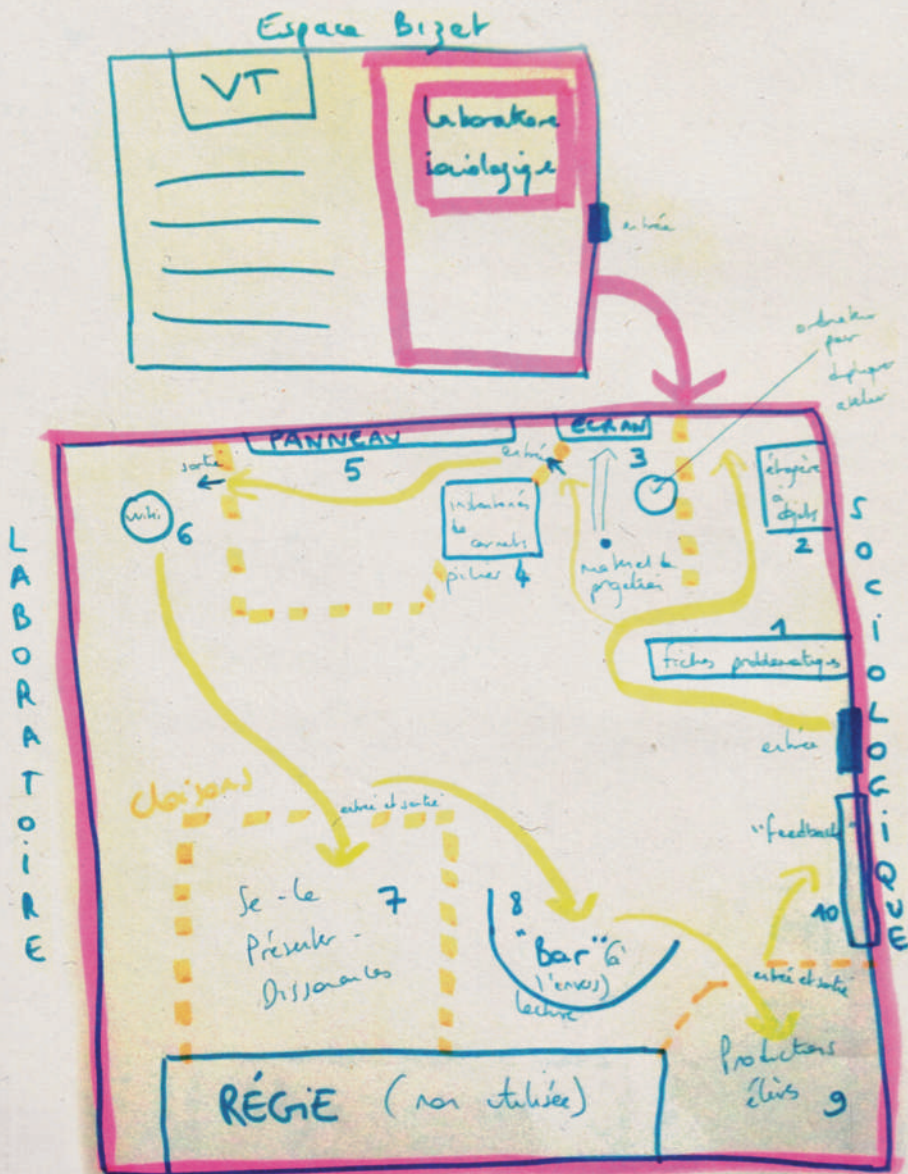 Espace Bizet
VT
Laboratoire
sociologique
entrée
ordinateur
pour
dupliquer
atelier
PANNEAU
5
ECRAN
3
sortie
entrée
étagère
à
objets
2
wiki
6
instantanés
de
carnets
pilier 4
matériel de
projection
1
fiches problématiques
LABORATOIRE
SOCIOLOGIQUE
entrée
cloisons
entrée et sortie
"feedback"
10
Se-le
Présenter -
Dissonances
7
8
"Bar" (à
l'envers)
lecture
entrée et sortie
Productions
élèves 9
RÉGIE (non utilisée)